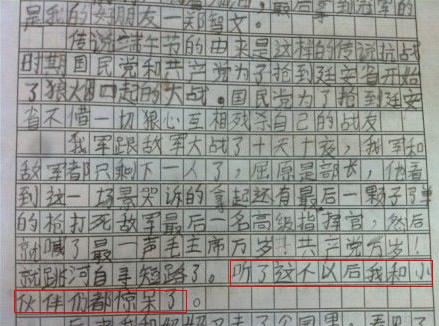 是我的好朋友一郑智文。
传说端午节的由来是这样的传说抗战
时期国民党和共产党为了抢到延安省开始
了狼火四起的大战。国民党为了抢到延安
省不惜一切狠心互相残杀自己的战友
我军跟敌军大战了十天十夜,我军和
敌军都只剩下一人了,屈原是部长,他看
到这一场景哭诉的拿起还有最后一颗子弹
的枪打死敌军最后一名高级指挥官,然后
就喊了最一声毛主席万岁!共产党万岁!
就跳河自寻短路了。听了这个以后我和小
伙伴们都惊呆了。